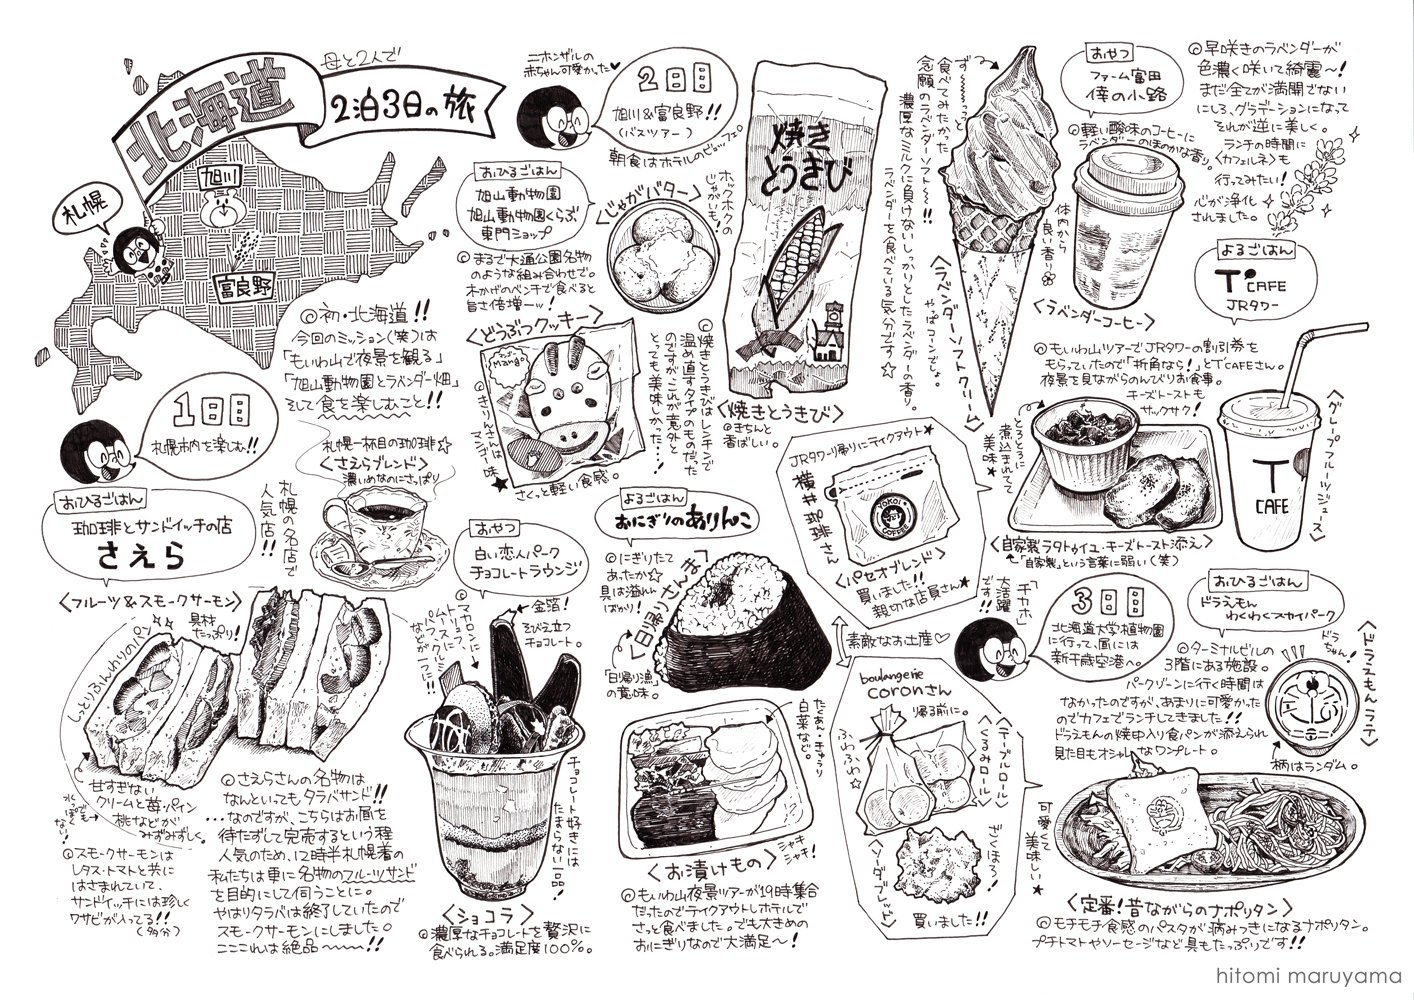 母と2人で
北海道
2泊3日の旅
旭川
札幌
富良野
◎初・北海道!!
今回のミッション(笑)は
「もいわ山で夜景を観る」
「旭山動物園とラベンダー畑」
そして食を楽しむこと!!
1日目
札幌市内を楽しむ!!
おひるごはん
珈琲とサンドイッチの店
さえら
札幌一杯目の珈琲☆
<さえらブレンド>
濃いめなのにさっぱり
札幌の名店で
人気店!!
<フルーツ&スモークサーモン>
具材
たっぷり!
しっとりふんわりのパン
甘すぎない
クリームと苺・パイン
桃などが
みずみずしく。
◎スモークサーモンは
レタス・トマトと共に
はさまれていて、
サンドイッチには珍しく
ワサビが入ってる!!
(多分)
◎さえらさんの名物は
なんといってもタラバサンド!!
…なのですが、こちらはお昼を
待たずして完売するという程
人気のため、12時半札幌着の
私たちは更に名物のフルーツサンド
を目的にして伺うことに。
やはりタラバは終了していたので
スモークサーモンにしました。
こここれは絶品〜〜〜!!
おやつ
白い恋人パーク
チョコレートラウンジ
金箔!
そびえ立つ
チョコレート。
マカロンに
チョコレート好きには
たまらない一品!
<ショコラ>
◎濃厚なチョコレートを贅沢に
食べられる。満足度100%。
ニホンザルの
赤ちゃん可愛かった♥
2日目
旭川&富良野!!
(バスツアー)
朝食はホテルのビュッフェ
おひるごはん
旭山動物園
旭山動物園くらぶ
専門ショップ
◎まるで大通公園名物
のような組み合わせで。
木かげのベンチで食べると
旨さ倍増ーッ!
<じゃがバター>
ホックホクの
じゃがいも!
<どうぶつクッキー>
mango
◎きりんさんは
マンゴー味
さくっと軽い食感。
焼き
とうきび
◎焼きとうきびはレンチンで
温め直すタイプのものだった
のですが、これが意外と
とっても美味しかった…!
<焼きとうきび>
◎きちんと
香ばしい。
ず〜〜〜っと
食べてみたかった
念願のラベンダーソフト〜!!
濃厚なミルクに負けないしっかりとしたラベンダーの香り。
ラベンダーを食べている気分です☆
やっぱコーンでしょ。
<ラベンダーソフトクリーム>
おやつ
ファーム富田
倖の小路
◎軽い酸味のコーヒーに
ラベンダーのほのかな香り。
体内から
良い香り
<ラベンダーコーヒー>
◎早咲きのラベンダーが
色濃く咲いて綺麗〜!
まだ全てが満開でない
にしろ、グラデーションになって
それが逆に美しく。
ランチの時間に
<カフェルネ>も
行ってみたい!
心が浄化
されました。
よるごはん
T'CAFE
JRタワー
◎もいわ山ツアーでJRタワーの割引券を
もらっていたので「折角なら!」とT'CAFEさん。
夜景を見ながらのんびりお食事。
チーズトーストも
サックサク!
とろとろに
煮込まれてて
美味★
<自家製ラタトゥイユ・チーズトースト添え>
「自家製」という言葉に弱い(笑)
T
CAFE
<グレープフルーツジュース>
よるごはん
おにぎりのありんこ
◎にぎりたて
あったか☆
具は溢れん
ばかり!
「日帰り漁」
の意味。
たくあん・きゅうり
白菜など。
シャキ
シャキ!
<お漬けもの>
◎もいわ山夜景ツアーが19時集合
だったのでテイクアウトしホテルで
さっと食べました。でも大きめの
おにぎりなので大満足〜!
JRタワー帰りにテイクアウト★
横井珈琲さん
YOKOI
COFFEE
<パセオブレンド>
買いました!!
親切な店員さん★
素敵なお土産♡
boulangerie
coronさん
帰る前に。
ふわふわ☆
<テーブルロール>
<くるみロール>
ざくほろ!
<ソーダブレッド>
買いました!!
「チカホ」
大活躍
です!!
3日目
北海道大学植物園
に行って、昼には
新千歳空港へ。
おひるごはん
ドラえもん
わくわくスカイパーク
◎ターミナルビルの
3階にある施設。
パークゾーンに行く時間は
なかったのですが、あまりに可愛かった
のでカフェでランチしてきました!!
ドラえもんの焼印入り食パンが添えられ
見た目もオシャレなワンプレート。
ドラ
ちゅん!
<ドラえもんラテ>
柄はランダム。
可愛くて
美味しい★
<定番!昔ながらのナポリタン>
◎モチモチ食感のパスタが病みつきになるナポリタン。
プチトマトやソーセージなど具もたっぷりです!!
hitomi maruyama